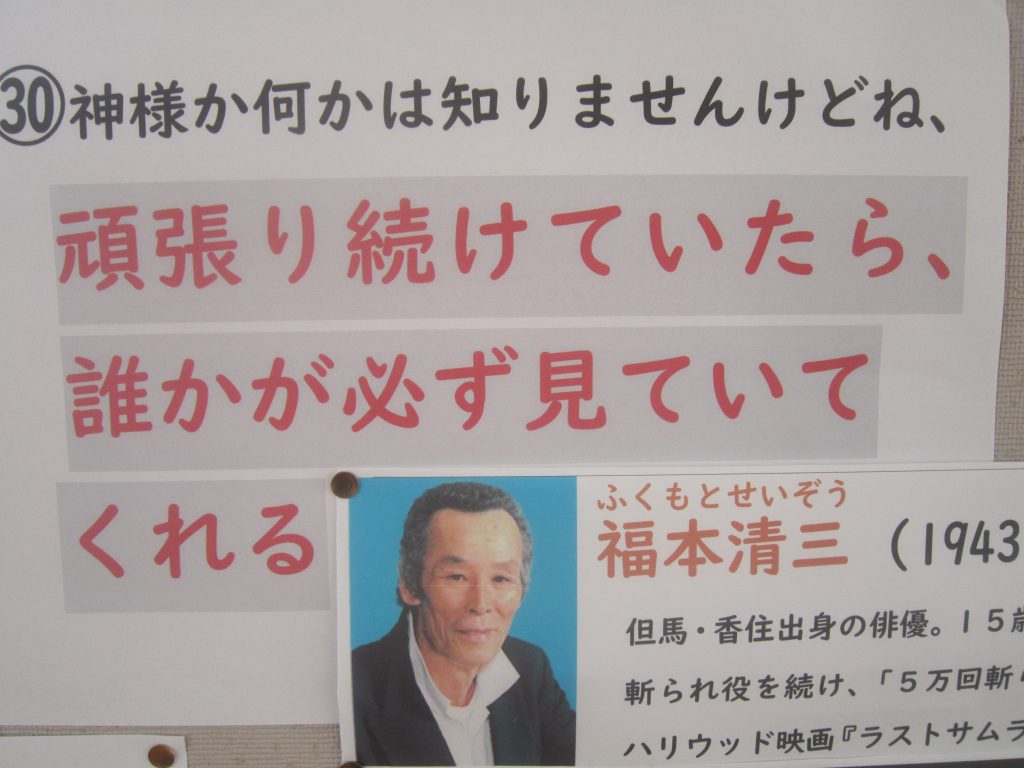 ㉚神様か何かは知りませんけどね、
頑張り続けていたら、
誰かが必ず見ていて
くれる
ふくもとせいぞう
福本清三 (1943
但馬・香住出身の俳優。１５歳
斬られ役を続け、「５万回斬ら
ハリウッド映画『ラストサムラ